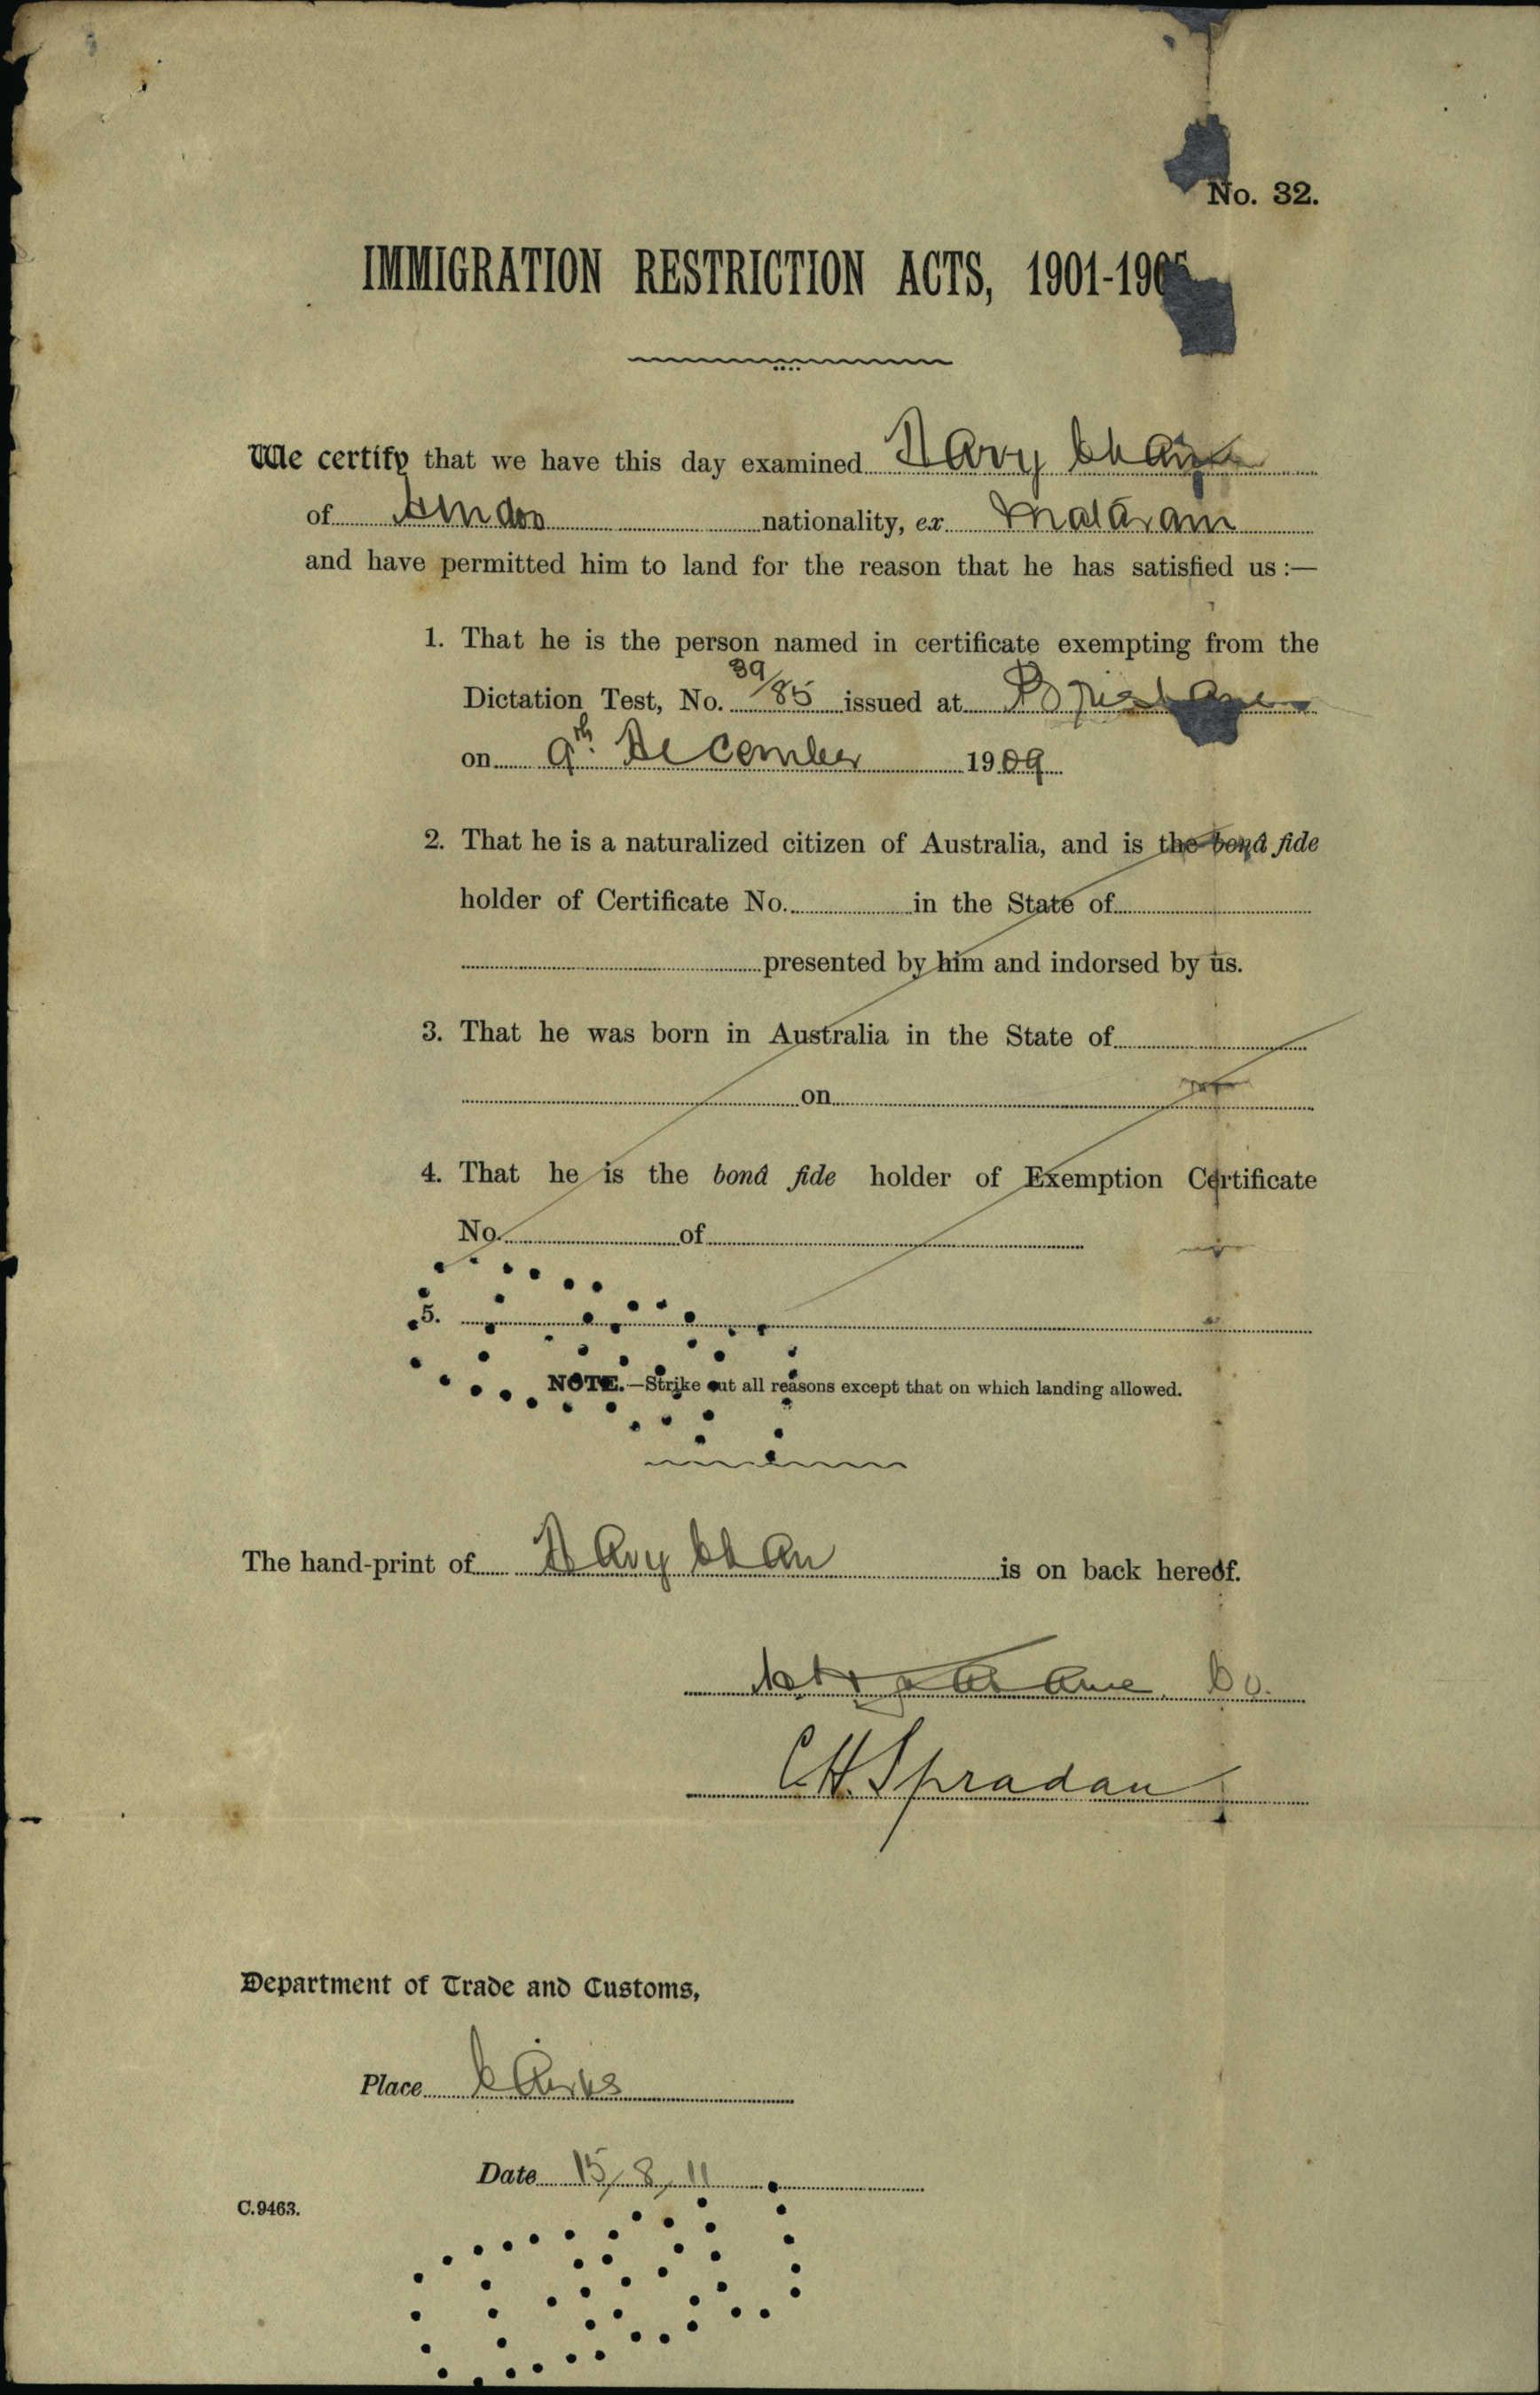 No. 32.
IMMIGRATION RESTRICTION ACTS, 1901-1905
We certify that we have this day examined Davy Chan
of Hindoo nationality, ex Mataram
and have permitted him to land for the reason that he has satisfied us :—
1. That he is the person named in certificate exempting from the
Dictation Test, No. 39/85 issued at Brisbane
on 9th. December 1909
2. That he is a naturalized citizen of Australia, and is the bonâ fide
holder of Certificate No. in the State of
presented by him and indorsed by us.
3. That he was born in Australia in the State of
on
4. That he is the bonâ fide holder of Exemption Certificate
No. of
5.
NOTE.—Strike out all reasons except that on which landing allowed.
The hand-print of Davy Chan is on back hereof.
C.H. Spradau
Department of Trade and Customs,
Place Cairns
Date 15/8/11
C.9463.